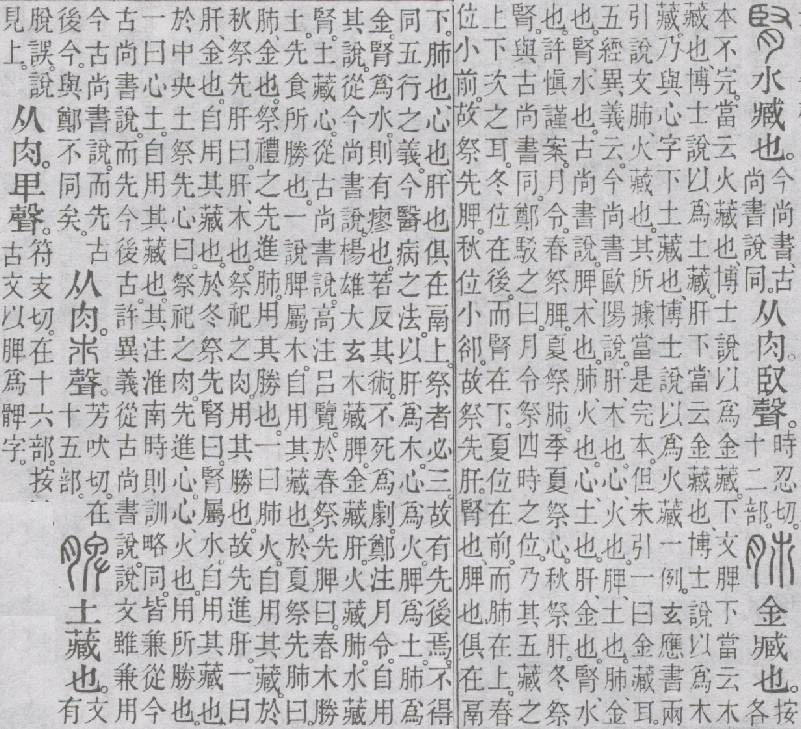 腎水臧也。今尚書古尚書說同。从肉臤聲。時忍切。十二部。肺金臧也。按各
本不完。當云火藏也。博士說以爲金藏。下文脾下當云木
藏也。博士說以爲土藏。肝下當云金藏也。博士說以爲木
藏。乃與心字下土藏也。博士說以爲火藏一例。玄應書兩
引說文肺火藏也。其所據當是完本。但未引一曰金藏耳。
五經異義云。今尚書歐陽說。肝木也。心火也。脾土也。肺金
也。腎水也。古尚書說。脾木也。肺火也。心土也。肝金也。腎水
也。許愼謹案。月令春祭脾。夏祭肺。季夏祭心。秋祭肝。冬祭
腎。與古尚書同。鄭駁之曰。月令祭四時之位。乃其五藏之
上下次之耳。冬位在後。而腎在下。夏位在前。而肺在上。春
位小前。故祭先脾。秋位小卻。故祭先肝。腎也。脾也。俱在鬲
下。肺也。心也。肝也。俱在鬲上。祭者必三。故有先後焉。不得
同五行之義。今醫病之法。以肝爲木。心爲火。脾爲土。肺爲
金。腎爲水。則有瘳也。若反其術。不死爲劇。鄭注月令自用
其說。從今尚書說。楊雄大玄木藏脾。金藏肝。火藏肺。水藏
腎。土藏心。從古尚書說。高注呂覽於春祭先脾曰。春木勝
土。先食所勝也。一說脾屬木。自用其藏也。於夏祭先肺曰。
肺金也。祭禮之先進肺。用其勝也。一曰肺火。自用其藏。於
秋祭先肝曰。肝木也。祭祀之肉用其勝也。故先進肝。一曰
肝金也。自用其藏也。於冬祭先腎曰。腎屬水。自用其藏也。
於中央土祭先心曰。祭祀之肉先進心。心火也。用所勝也。
一曰心土。自用其藏也。其注淮南時則訓略同。皆兼從今
古尚書說。而先今後古。許異義從古尚書說。說文雖兼用
今古尚書說。而先古後今。與鄭不同矣。从肉巿聲。芳吠切。在十五部。脾土藏也。文有
脫誤。說見上。从肉卑聲。符支切。在十六部。按古文以脾爲髀字。